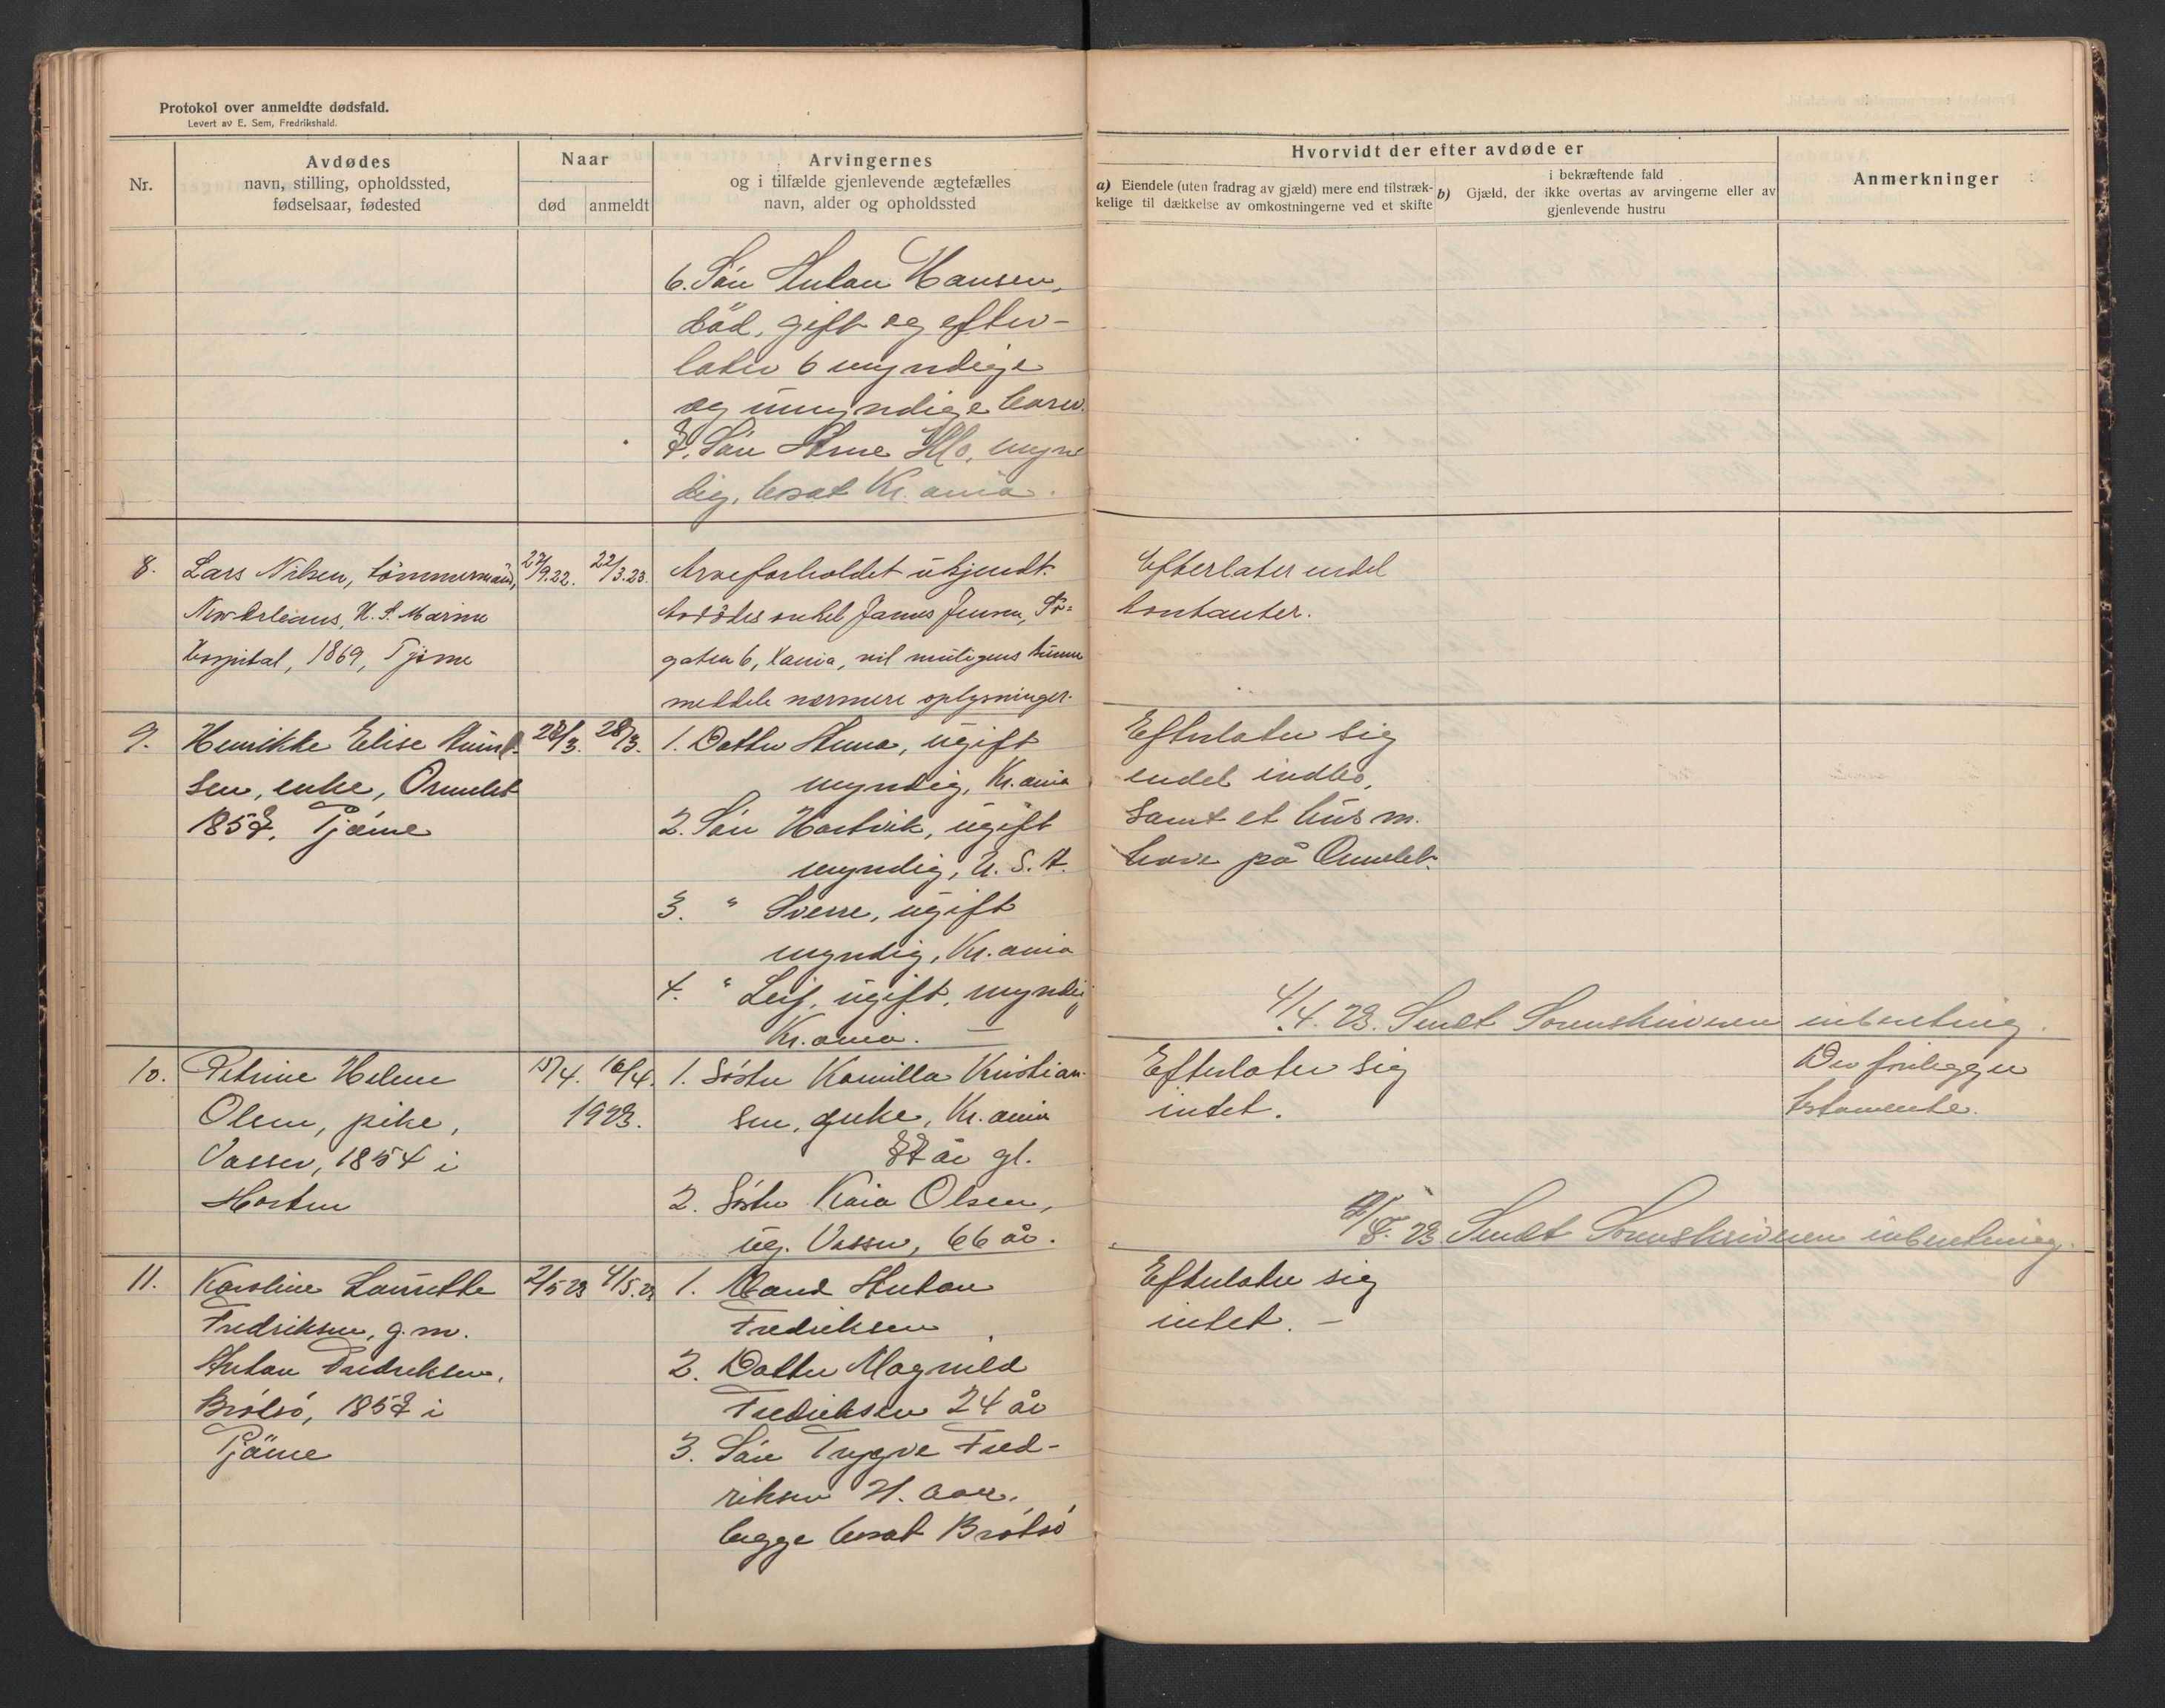 Protokol over anmeldte dødsfald.
Levert av E. Sem, Fredrikshald.
Nr.
Avdødes
navn, stilling, opholdssted,
fødselsaar, fødested
Naar
død
anmeldt
Arvingernes
og i tilfælde gjenlevende ægtefælles
navn, alder og opholdssted
Hvorvidt der efter avdøde er
a) Eiendele (uten fradrag av gjæld) mere end tilstræk-
kelige til dækkelse av omkostningerne ved et skifte
i bekræftende fald
b) Gjæld, der ikke overtas av arvingerne eller av
gjenlevende hustru
Anmerkninger
6. Sön Anton Hansen,
död, gift og efter-
later 6 myndige
og umyndige barn.
7. Sön Arne Mo, myn
dig, bosat Kr.ania.
8.
Lars Nilsen, tömmermand,
New Orleans, U. S. Marine
Hospital, 1869, Tjöme
27/9.22.
22/3.23.
Arveforholdet ukjendt.
Avdödes onkel James Jensen,
gaten 6, Kania, vil muligens kunne
meddele nærmere oplysninger.
Efterlater endel
kontanter.
9.
Henrikke Elise
sen, enke, Ormelet
1857, Tjöme
28/3.
1. Datter Anna, ugift
myndig, Kr.ania
2. Sön Hartvik, ugift
myndig, U. S. A.
3. " Sverre, ugift
myndig, Kr.ania
4. " Leif, ugift, myndig
Kr.ania. —
Efterlater sig
endel indbo,
samt et hus m.
have på Ormelet.
4/4. 23. Sendt Sorenskriveren inberetning.
10.
Petrine Helene
Olsen, pike,
Vasser, 1854 i
Horten
15/4.
16/4.
1923.
1. Söster Kamilla Kristian-
sen, enke, Kr.ania
77 år gl.
2. Söster Kaia Olsen,
ug. Vasser, 66 år.
Efterlater sig
intet.
Der foreligger
testamente.
23 Sendt Sorenskriveren inberetning.
11.
Karoline Laurette
Fredriksen, g.m.
Anton Fredriksen,
Brötsö, 1857 i
Tjöme
2/5 23
4/5.23
1. Mand Anton
Fredriksen
2. Datter Magnild
Fredriksen 24 år
3. Sön Trygve Fred-
riksen 21. aar.
begge bosat Brötsö
Efterlater sig
intet. —